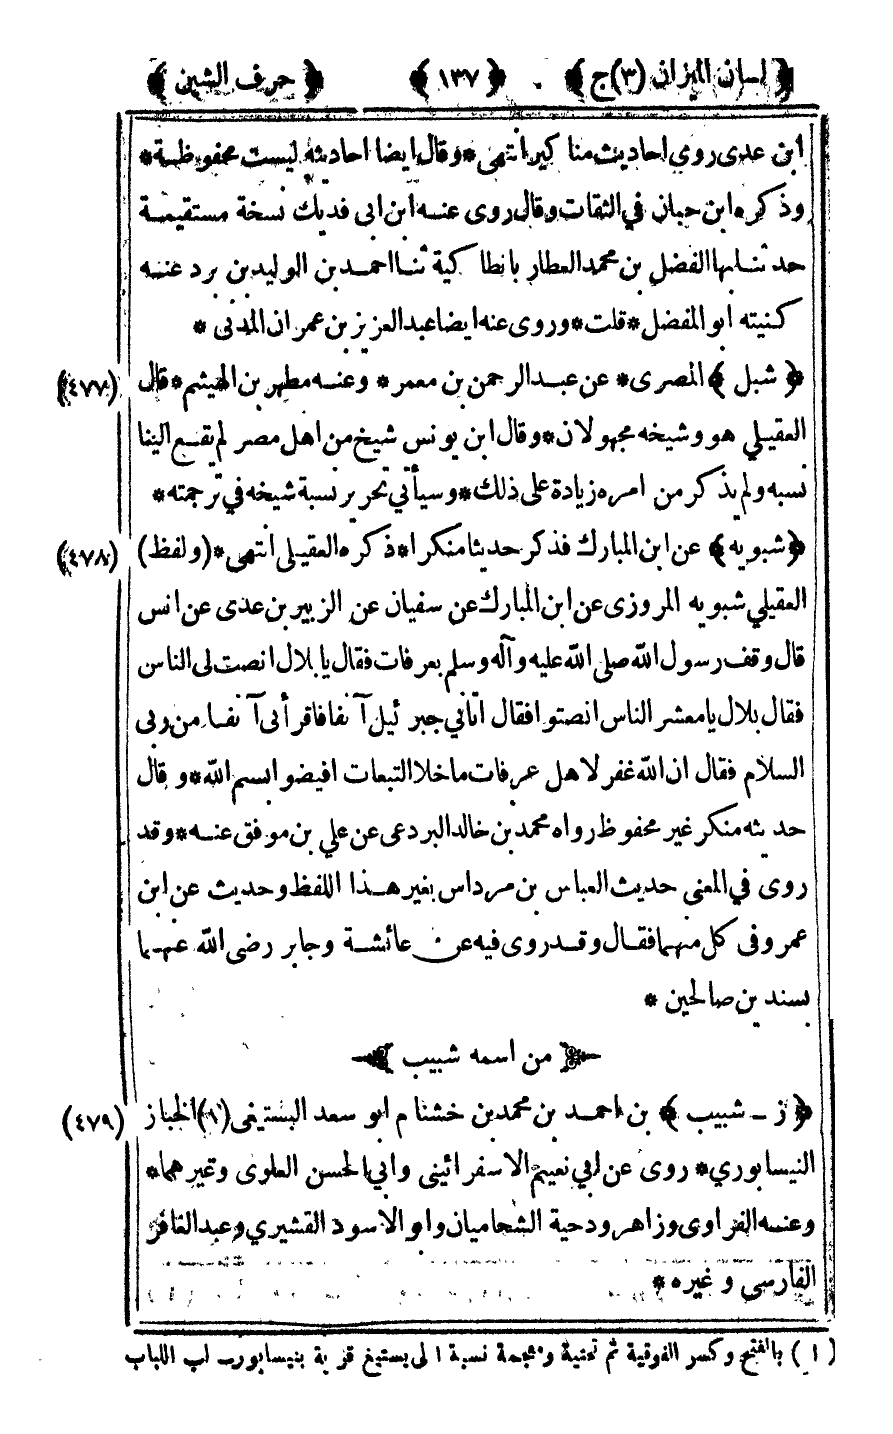 ﴿ لسان الميزان (٣)ج ﴾ . ﴿ ١٣٧ ﴾ ﴿ حرف الشين ﴾
ابن عدى روى احاديث منا كير انتهى * وقال ايضا احاديثه ليست محفوظة *
وذكره ابن حبان في الثقات وقال روى عنه ابن ابى فديك نسخة مستقيمة
حدثنا بها الفضل بن محمد العطار بانطاكية ثنا احمد بن الوليد بن برد عنه
كنيته ابو المفضل * قلت * وروى عنه ايضا عبد العزيز بن عمران المدنى *
﴿ شبل ﴾ المصرى * عن عبد الرحمن بن معمر * وعنه مطهر بن الهيثم * قال (٤٧٧)
العقيلي هو وشيخه مجهولان * وقال ابن يونس شيخ من اهل مصر لم يقع الينا
نسبه ولم يذكر من امره زيادة على ذلك * وسيأتي تحرير نسبة شيخه في ترجمته *
﴿ شبويه ﴾ عن ابن المبارك فذكر حديثا منكرا * ذكره العقيلى انتهى * (ولفظ) (٤٧٨)
العقيلي شبويه المروزى عن ابن المبارك عن سفيان عن الزبير بن عدى عن انس
قال وقف رسول الله صلى الله عليه وآله وسلم بعرفات فقال يا بلال انصت لى الناس
فقال بلال يا معشر الناس انصتوا فقال اتاني جبرئيل آنفا فاقرأنى آنفا من ربى
السلام فقال ان الله غفر لاهل عرفات ما خلا التبعات افيضوا بسم الله * وقال
حديثه منكر غير محفوظ رواه محمد بن خالد البردعى عن علي بن موفق عنه * وقد
روى في المعنى حديث العباس بن مرداس بغير هذا اللفظ وحديث عن ابن
عمر وفى كل منهما فقال وقد روى فيه عن عائشة وجابر رضى الله عنهما
بسندين صالحين *
من اسمه شبيب
﴿ ز - شبيب ﴾ بن احمد بن محمد بن خشنام ابو سعد البستيغى (١) الخباز (٤٧٩)
النيسابوري * روى عن ابي نعيم الاسفرائينى وابي الحسن العلوى وغيرهما *
وعنه الفراوى وزاهر ودحية الشحاميان وابو الاسود القشيري وعبد الغافر
الفارسى وغيره *
(١) بالفتح وكسر الفوقية ثم تحتية ومعجمة نسبة الى بستيغ قرية بنيسابور لب اللباب